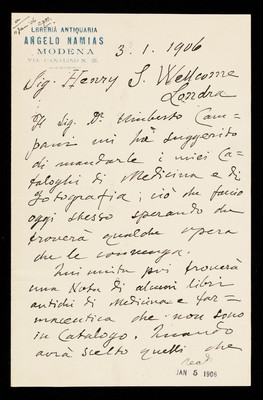 LIBRERIA ANTIQUARIA
ANGELO NAMIAS
MODENA
VIA CANALINO N. 25.
3. 1. 1906
Sig. Henry S. Wellcome
Londra
Il Sig. Dr. Umberto Cam-
pani mi ha suggerito
di mandarle i miei Ca-
taloghi di Medicina e di
Fotografia; ciò che faccio
oggi stesso sperando che
troverà qualche opera
che le convenga.
Qui unita poi troverà
una Nota di alcuni libri
antichi di Medicina e far-
maceutica che non sono
in Catalogo. Quando
avrà scelto quelli che
Recd
JAN 5 1906